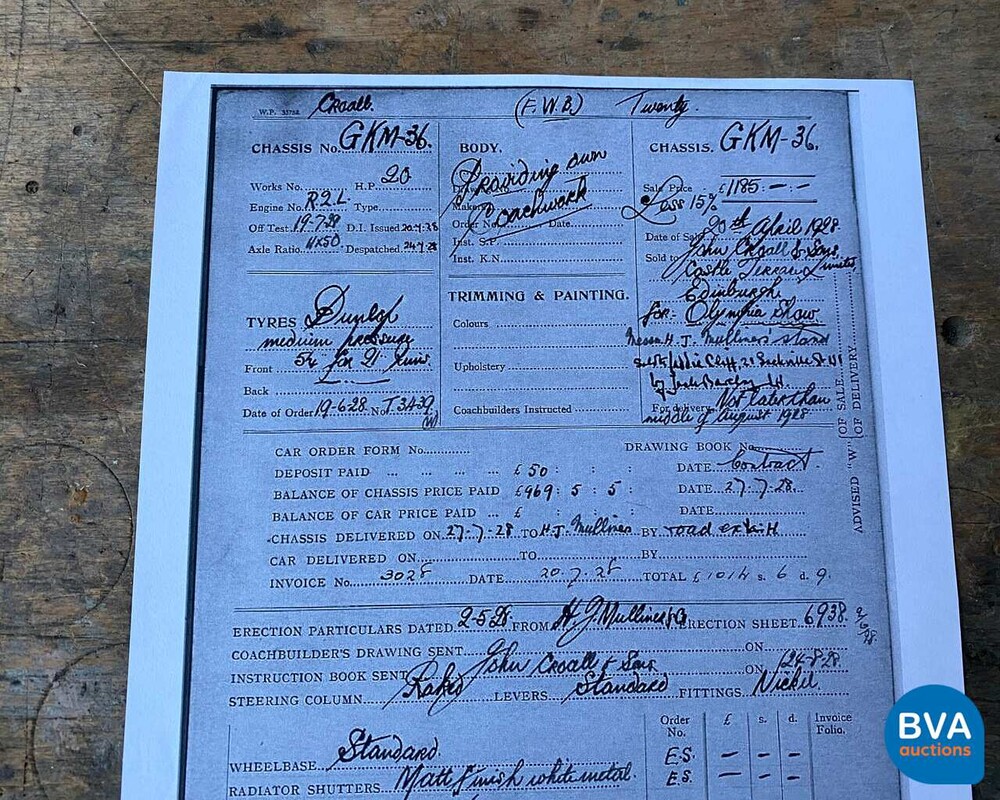 W.P. Croall. (F.W.B.) Twenty.
CHASSIS No. GKM-36.
Works No. H.P. 20
Engine No. R2L Type
Off Test 19-7-28 D.I. Issued 20-7-28
Axle Ratio 11x50 Despatched 24-7-28
TYRES Dunlop
medium pressure
Front for 21" rims
Back
Date of Order 19-6-28 No. T3439
(W)
BODY.
Providing own
Coachwork
Order No. Date
Inst. S.P.
Inst. K.N.
TRIMMING & PAINTING.
Colours
Upholstery
Coachbuilders Instructed
CHASSIS. GKM-36.
Sale Price £1185:-:-
Less 15%
Date of Sale 20th April 1928
Sold to John Croall & Sons
Castle Terrace Limited
Edinburgh.
for:- Olympia Show
Messrs H. J. Mulliner's stand
by Jack Barclay Ld
For delivery Not later than
middle of August 1928
OF SALE
OF DELIVERY
ADVISED "W"
CAR ORDER FORM No. DRAWING BOOK No.
DEPOSIT PAID £50 : : DATE Contract
BALANCE OF CHASSIS PRICE PAID £969 : 5 : 5 : DATE 27-7-28
BALANCE OF CAR PRICE PAID £ : : DATE
CHASSIS DELIVERED ON 27-7-28 TO H.J. Mulliner BY road ex
CAR DELIVERED ON TO BY
INVOICE No. 3028 DATE 20-7-28 TOTAL £1014 s. 6 d. 9.
ERECTION PARTICULARS DATED 2-5-28 FROM H J Mulliner & Co ERECTION SHEET 6938.
COACHBUILDER'S DRAWING SENT ON
INSTRUCTION BOOK SENT John Croall & Sons ON 24-8-28
STEERING COLUMN Raked LEVERS Standard FITTINGS Nickel
Order No. £ s. d. Invoice Folio.
WHEELBASE Standard E.S. - -
RADIATOR SHUTTERS Matt finish white metal. E.S. - -
BVA
auctions